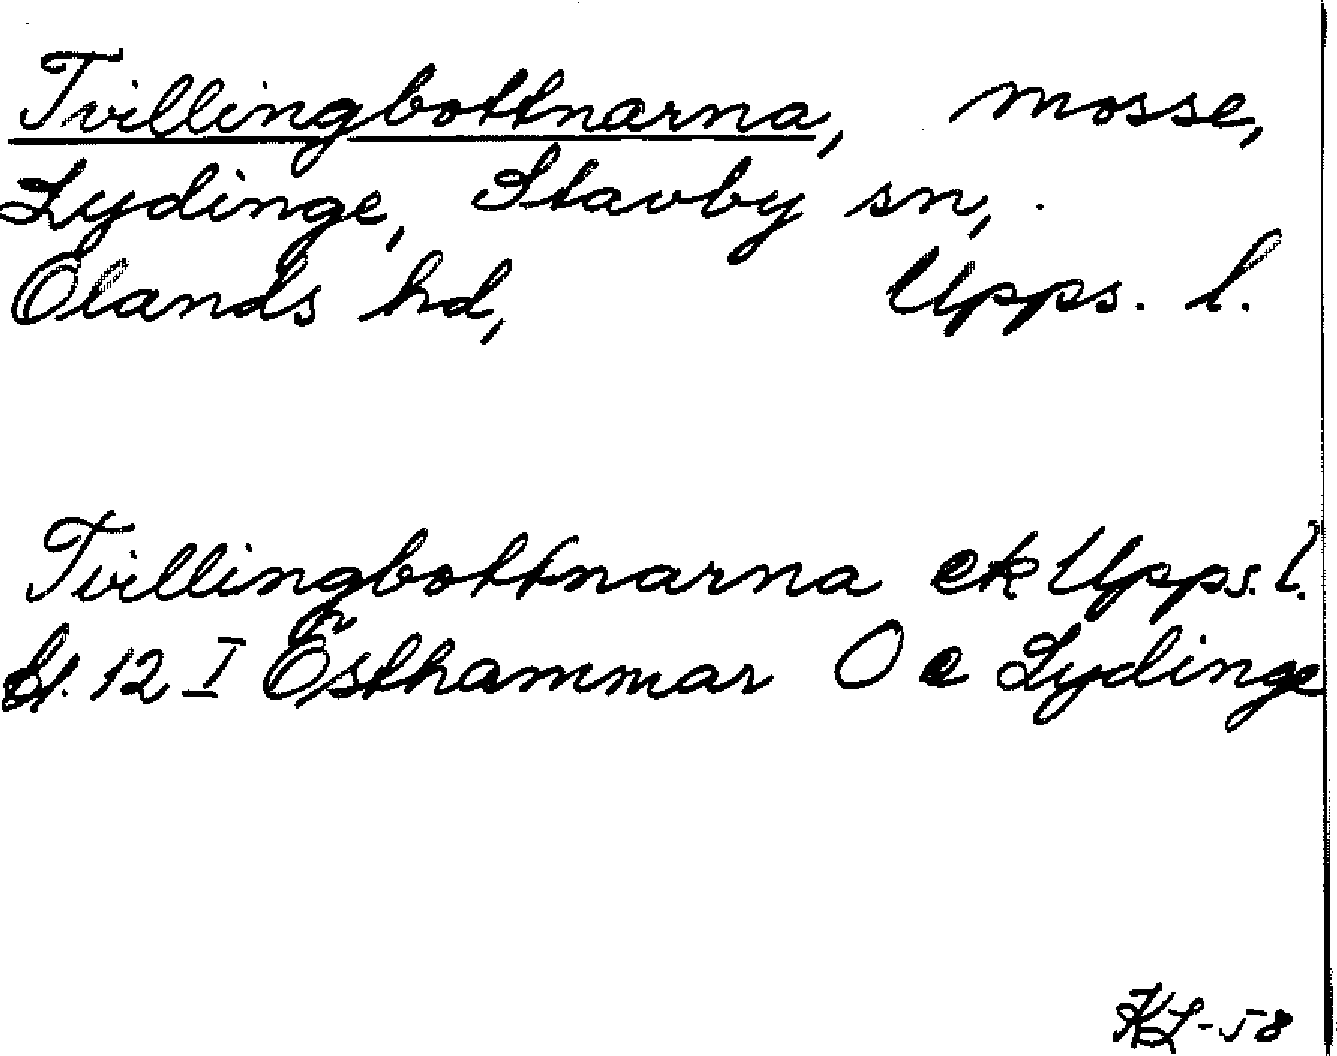 Tvillingbottnarna, mosse,
Lydinge, Stavby sn,
Olands hd, Upps. l.
Tvillingbottnarna ek Upps. l.
bl. 12 I Östhammar O e Lydinge
KL-58